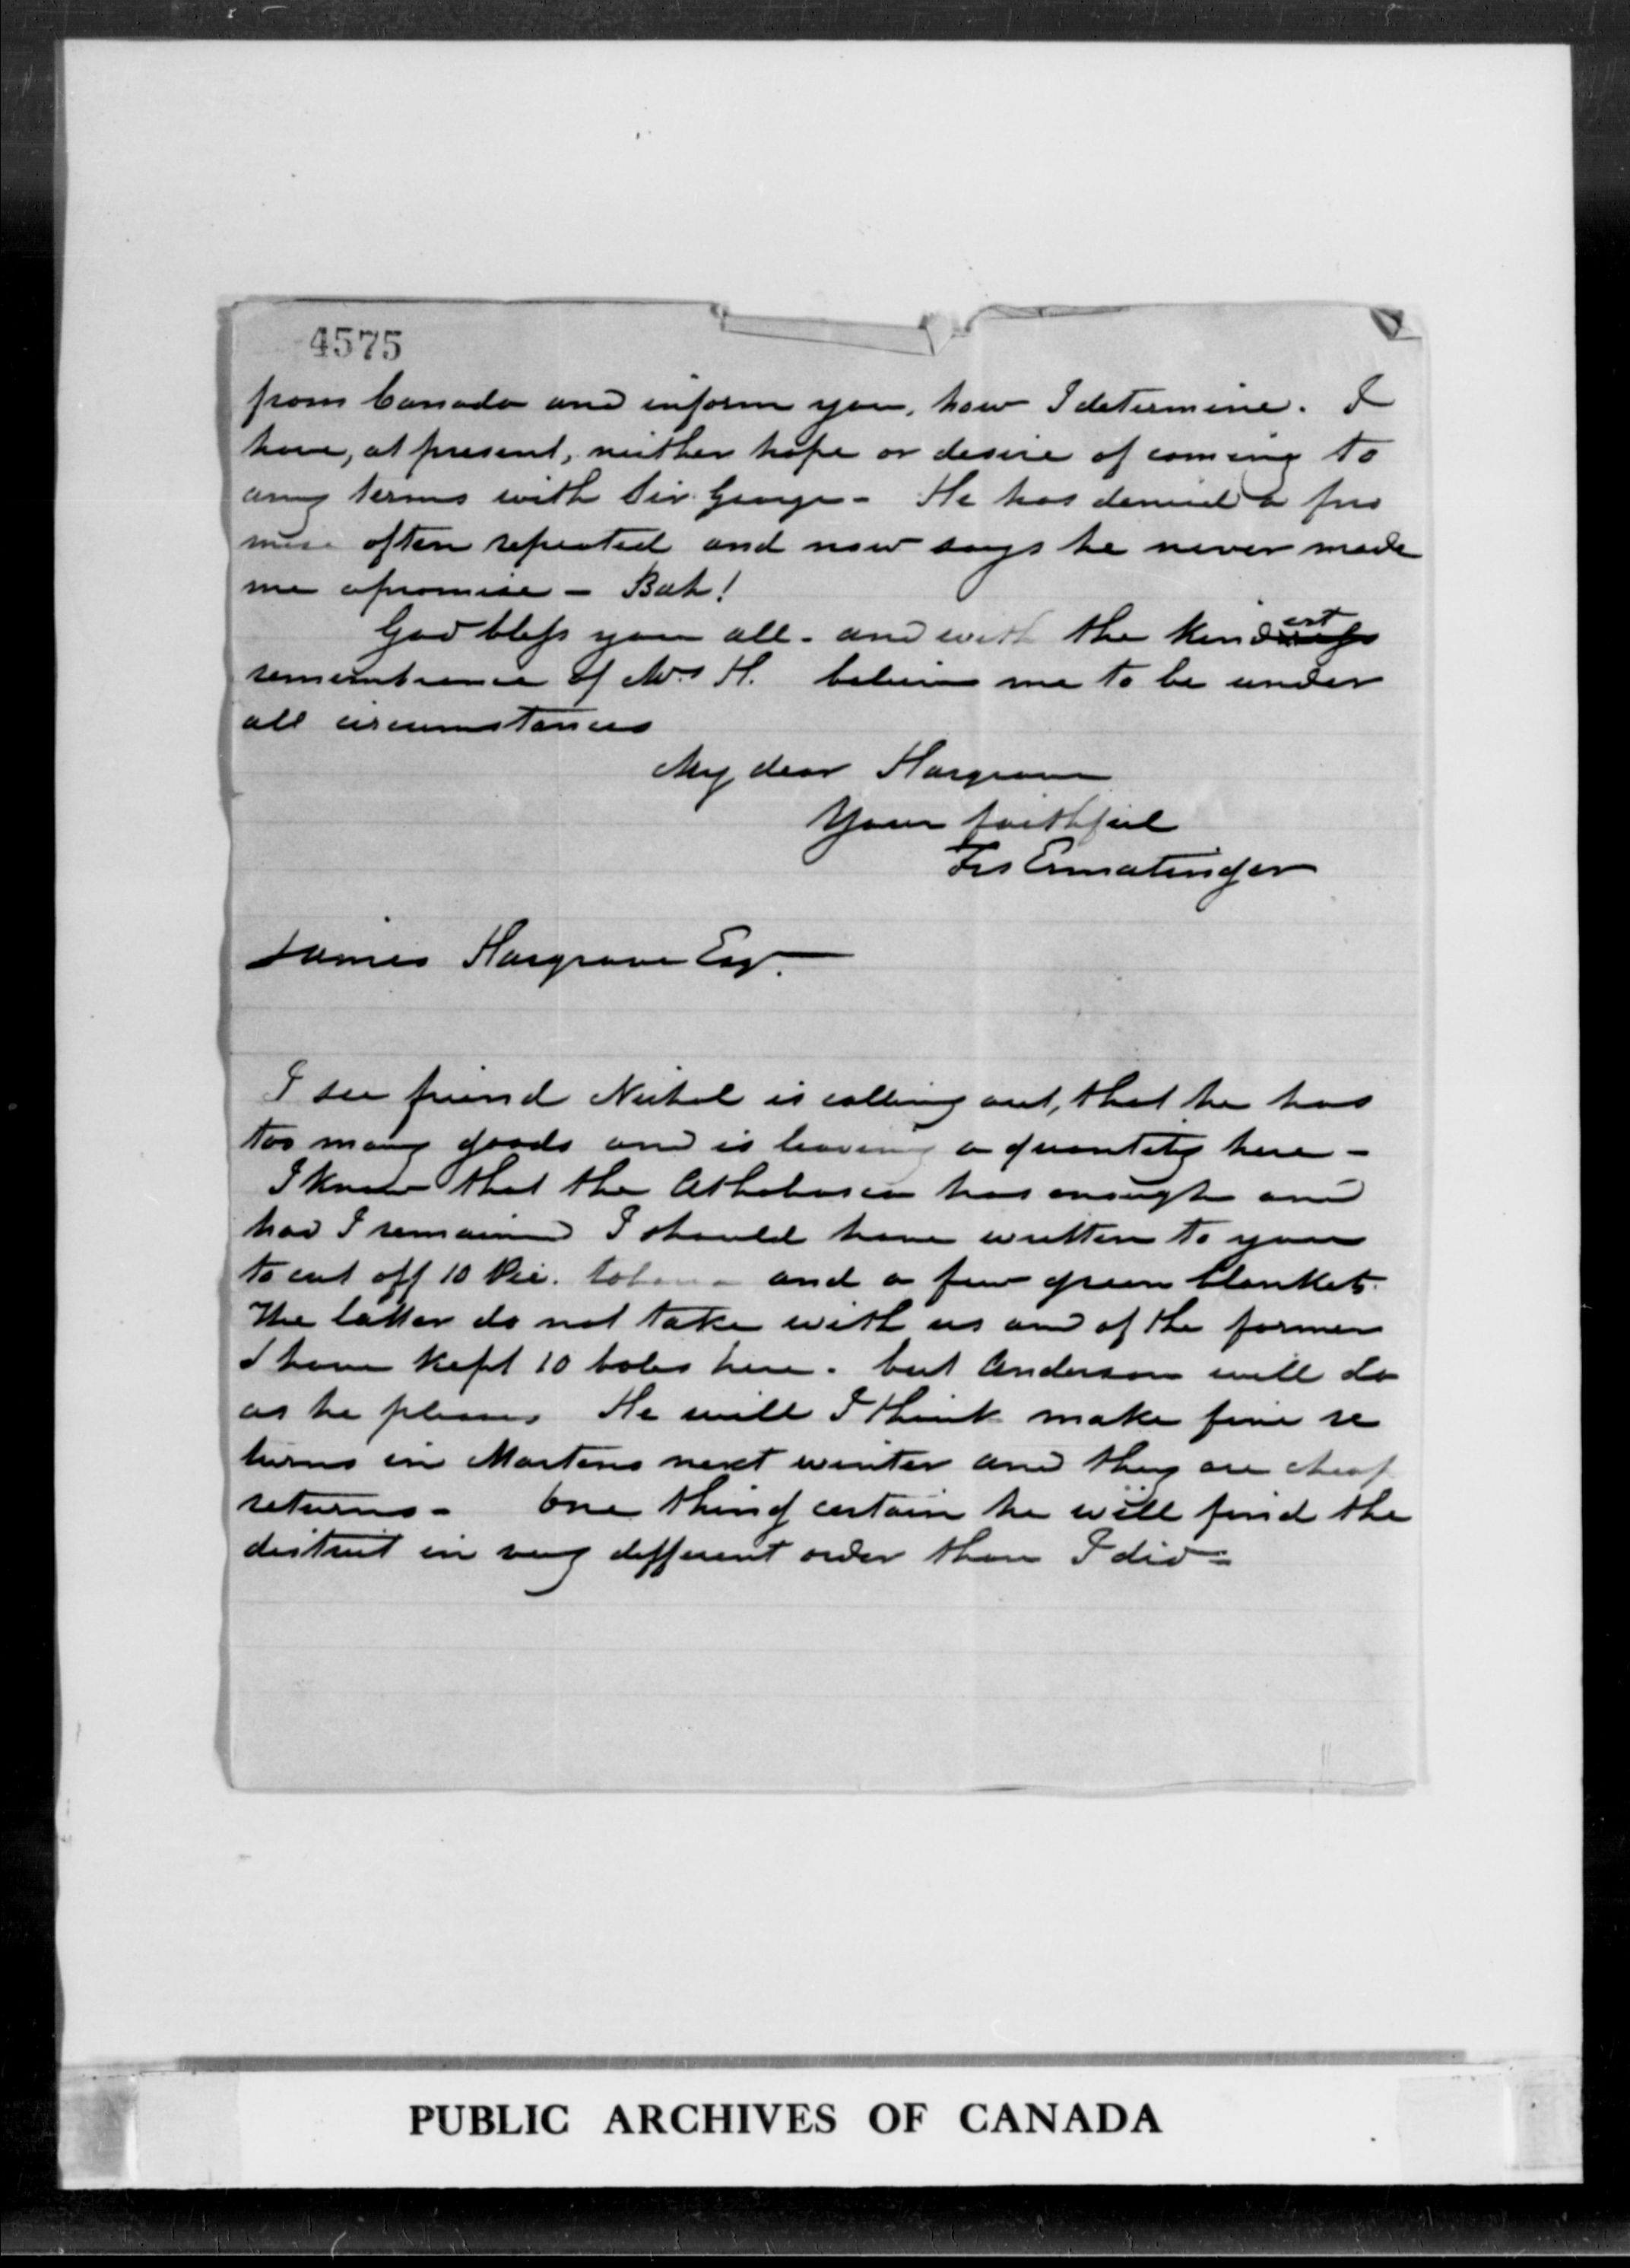 4575
from Canada and inform you, how I determine. I
have, at present, neither hope or desire of coming to
any terms with Sir George - He has denied a pro
mise often repeated and now says he never made
me a promise - Bah!
God bless you all - and with the kindest
remembrance of Mrs H. believe me to be under
all circumstances
My dear Hargrave
Your faithful
Frs Ermatinger
James Hargrave Esqr.
I see friend Nichol is calling out, that he has
too many goods and is leaving a quantity here -
I know that the Athabasca has enough and
had I remained I should have written to you
to cut off 10 Pie. tobacco and a few green blankets.
The latter do not take with us and of the former
I have kept 10 bales here - but Anderson will do
as he pleases He will I think make fine re
turns in Martens next winter and they are cheap
returns - One thing certain he will find the
district in very different order than I did -
PUBLIC ARCHIVES OF CANADA